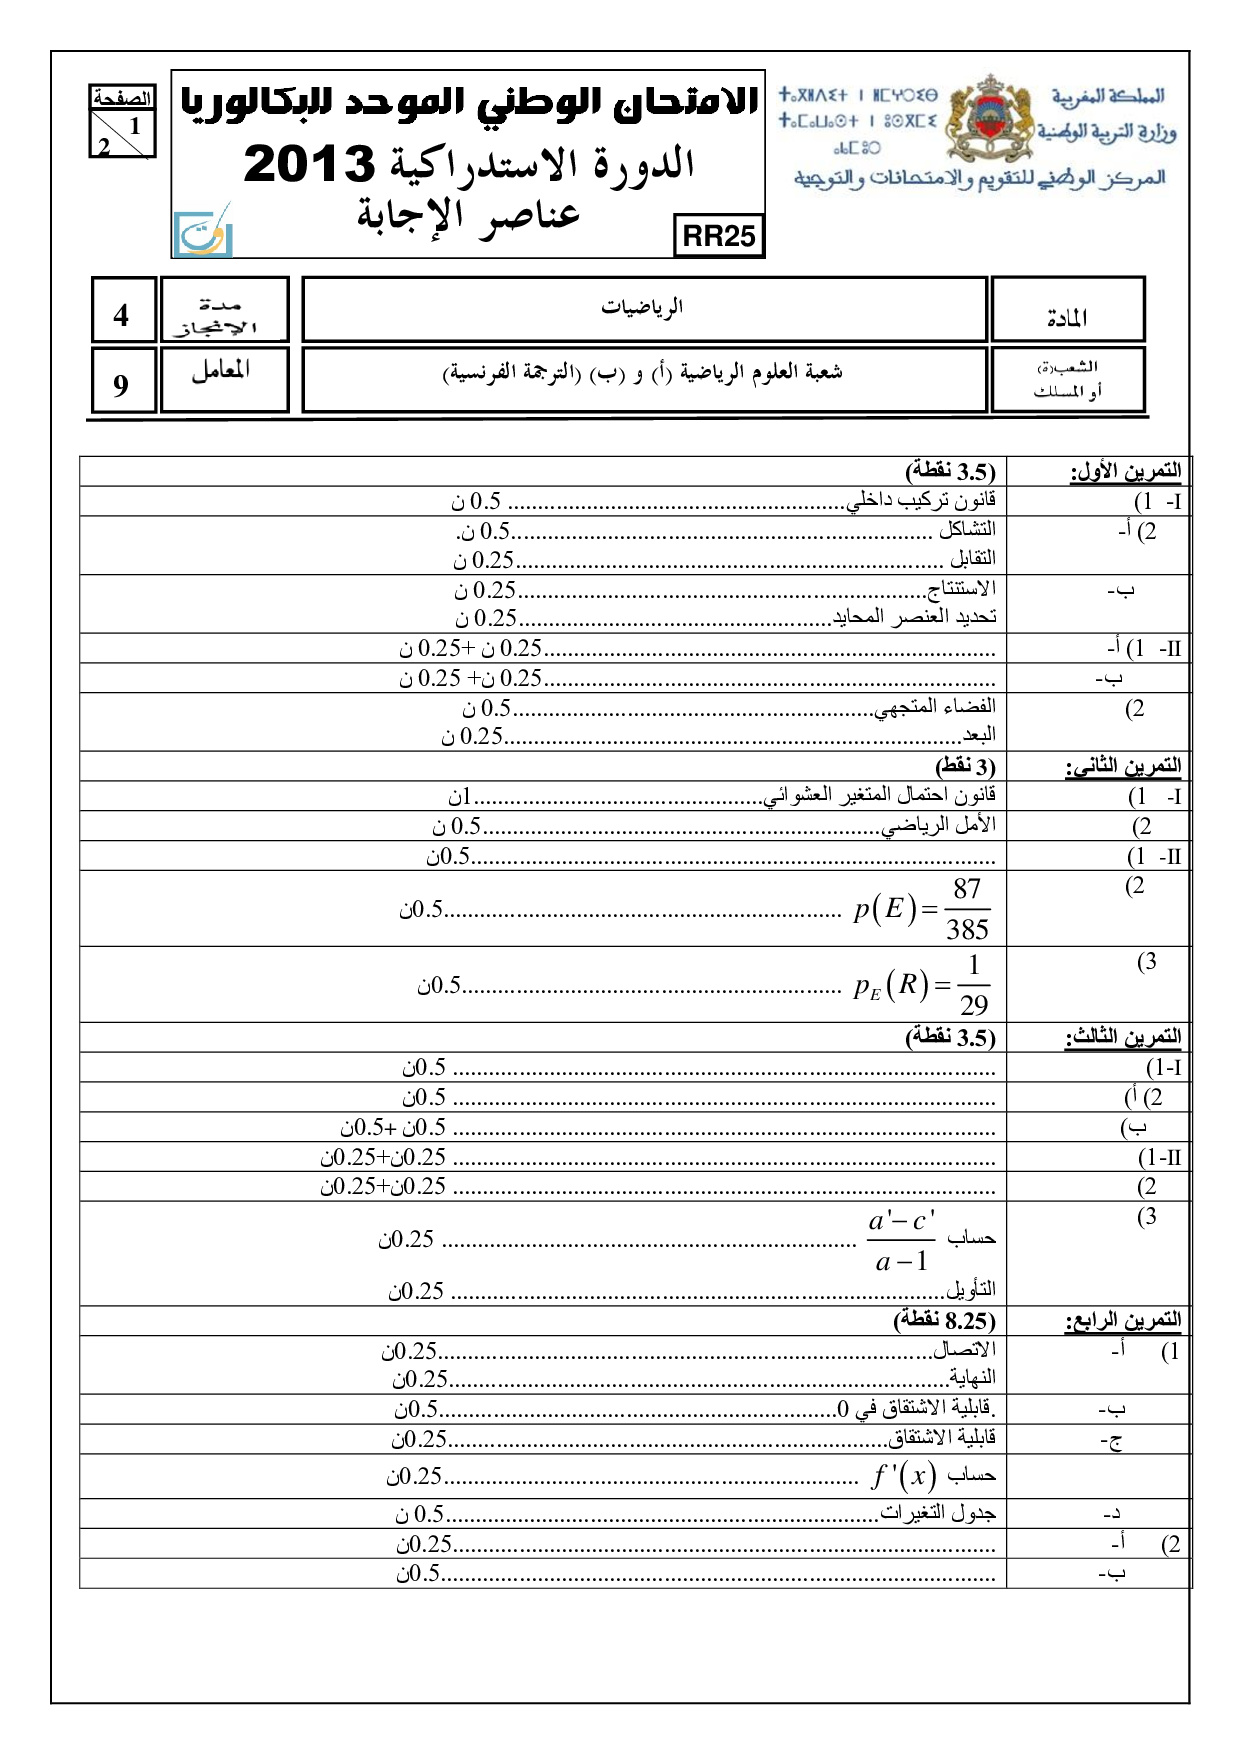 الصفحة
1
2
الامتحان الوطني الموحد للبكالوريا
الدورة الاستدراكية 2013
عناصر الإجابة
RR25
ⵜⴰⴳⵍⴷⵉⵜ ⵏ ⵍⵎⵖⵔⵉⴱ
ⵜⴰⵎⴰⵡⴰⵙⵜ ⵏ ⵓⵙⴳⵎⵉ
ⴰⵏⴰⵎⵓⵔ
المملكة المغربية
وزارة التربية الوطنية
المركز الوطني للتقويم والامتحانات والتوجيه
المادة
الرياضيات
مدة الإنجاز
4
الشعب(ة) أو المسلك
شعبة العلوم الرياضية (أ) و (ب) (الترجمة الفرنسية)
المعامل
9
التمرين الأول: (3.5 نقطة)
I- 1) قانون تركيب داخلي........................................................ 0.5 ن
2) أ- التشاكل ......................................................................0.5 ن.
التقابل .......................................................................0.25 ن
ب- الاستنتاج....................................................................0.25 ن
تحديد العنصر المحايد....................................................0.25 ن
II- 1) أ- ...........................................................................0.25 ن +0.25 ن
ب- ...........................................................................0.25 ن+ 0.25 ن
2) الفضاء المتجهي............................................................0.5 ن
البعد............................................................................0.25 ن
التمرين الثاني: (3 نقط)
I- 1) قانون احتمال المتغير العشوائي................................................1ن
2) الأمل الرياضي..................................................................0.5 ن
II- 1) .......................................................................................0.5ن
2) p(E)=87/385 ..................................................................0.5ن
3) p_E(R)=1/29 ...............................................................0.5ن
التمرين الثالث: (3.5 نقطة)
I-1) .......................................................................................... 0.5ن
2) أ) .......................................................................................... 0.5ن
ب) .......................................................................................... 0.5ن +0.5ن
II-1) .......................................................................................... 0.25ن+0.25ن
2) .......................................................................................... 0.25ن+0.25ن
3) حساب (a'-c')/(a-1) ..................................................................... 0.25ن
التأويل.................................................................................. 0.25ن
التمرين الرابع: (8.25 نقطة)
1) أ- الاتصال..................................................................................0.25ن
النهاية...................................................................................0.25ن
ب- .قابلية الاشتقاق في 0..................................................................0.5ن
ج- قابلية الاشتقاق.........................................................................0.25ن
حساب f'(x) .....................................................................0.25ن
د- جدول التغيرات........................................................................0.5 ن
2) أ- ..........................................................................................0.25ن
ب- ............................................................................................0.5ن